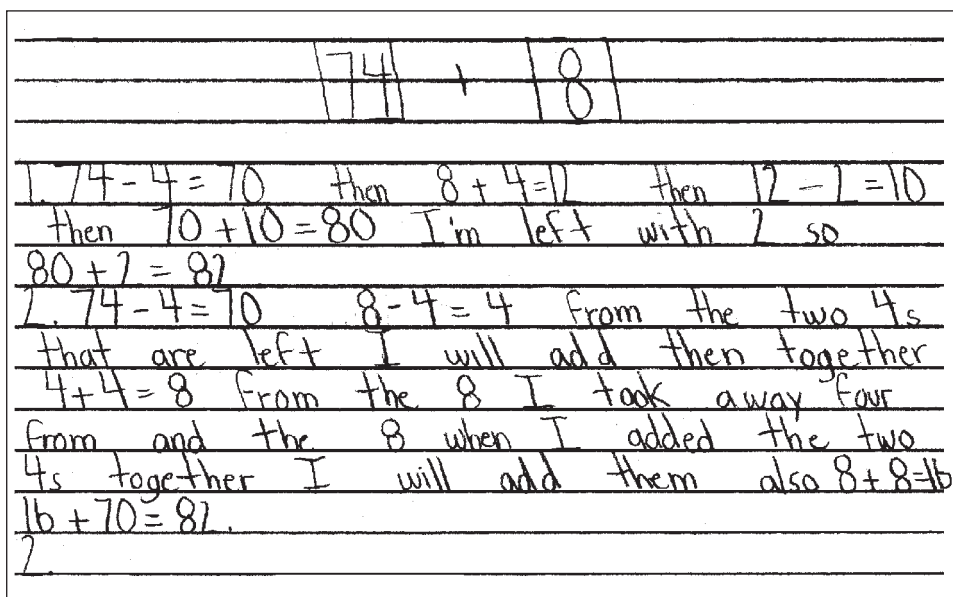 74 + 8
1. 74 - 4 = 70 then 8 + 4 = 12 then 12 - 2 = 10
then 70 + 10 = 80 I'm left with 2 so
80 + 2 = 82
2. 74 - 4 = 70 8 - 4 = 4 from the two 4s
that are left I will add then together
4 + 4 = 8 from the 8 I took away four
from and the 8 when I added the two
4s together I will add them also 8 + 8 = 16
16 + 70 = 82.
2.